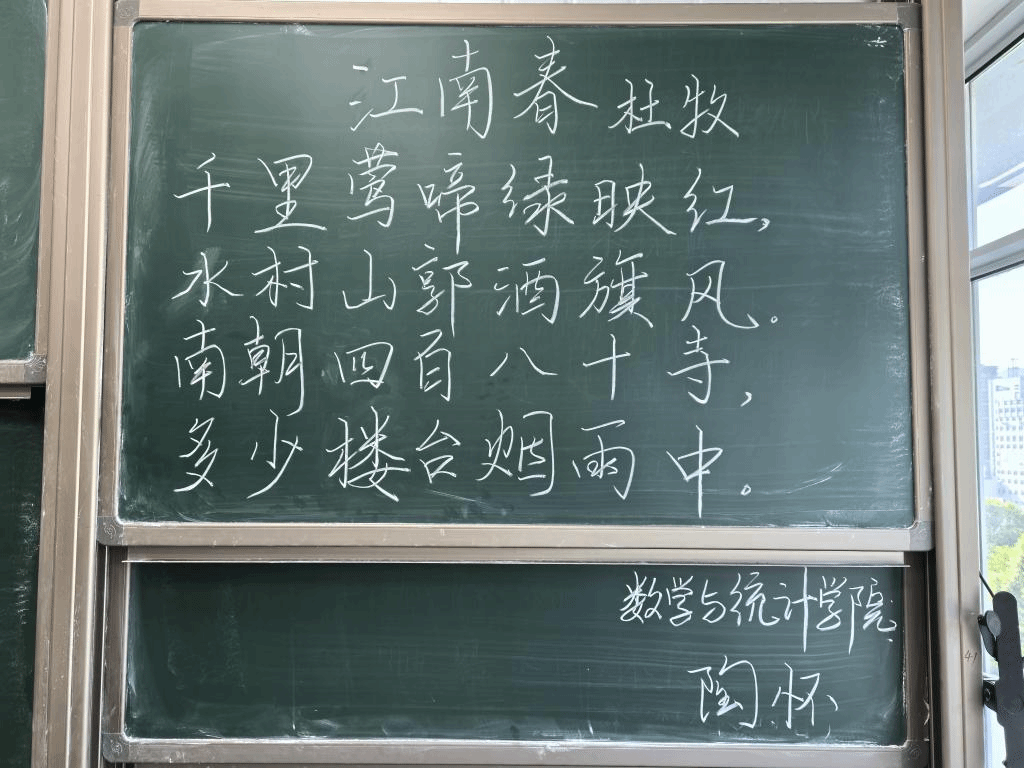 江南春 杜牧
千里莺啼绿映红,
水村山郭酒旗风.
南朝四百八十寺,
多少楼台烟雨中。
数学与统计学院
陶怀
41